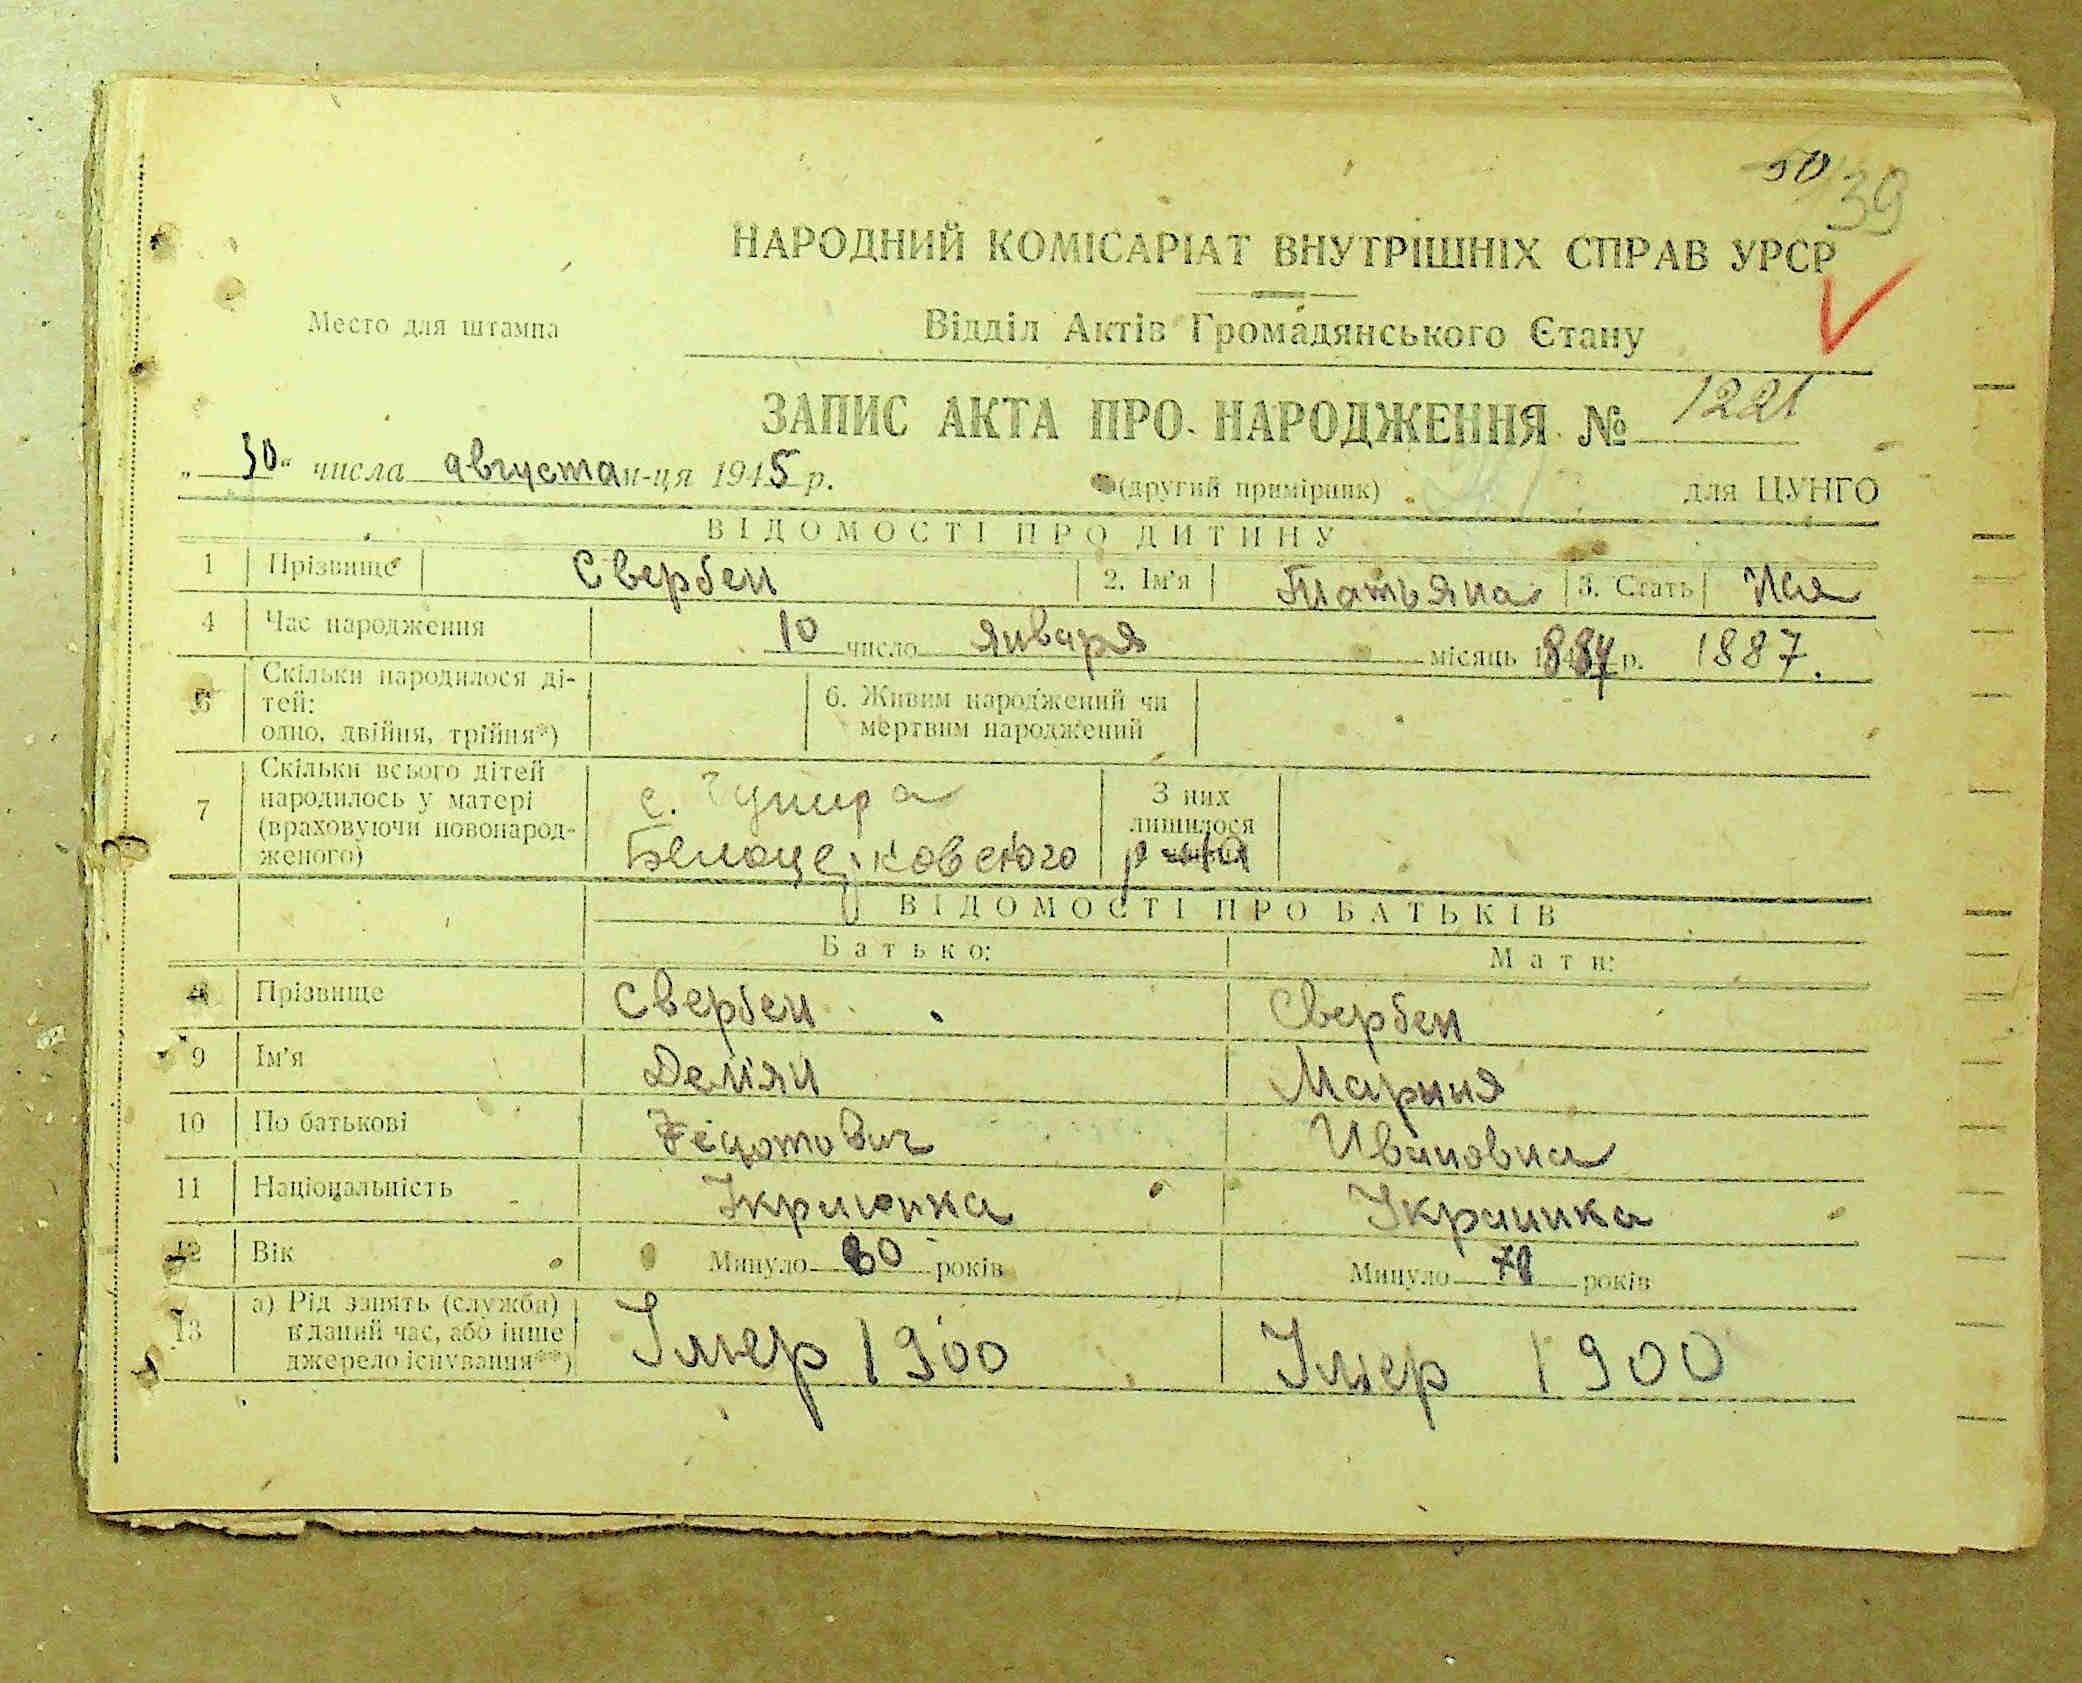 50 39
НАРОДНИЙ КОМІСАРІАТ ВНУТРІШНІХ СПРАВ УРСР
Место для штампа
Відділ Актів Громадянського Стану
ЗАПИС АКТА ПРО НАРОДЖЕННЯ № 1221
„30“ числа августа м-ця 1945 р. (другий примірник) для ЦУНГО
ВІДОМОСТІ ПРО ДИТИНУ
1 Прізвище Свербен 2. Ім'я Татьяна 3. Стать
4 Час народження 10 число января місяць р. 1887.
5 Скільки народилося ді-
тей:
одно, двійня, трійня*)
6. Живим народжений чи
мертвим народжений
7 Скільки всього дітей
народилось у матері
(враховуючи новонарод-
женого)
с. Чупира
Белоцерковского
З них
лишилося
р-на
ВІДОМОСТІ ПРО БАТЬКІВ
Батько: Мати:
8 Прізвище Свербен Свербен
9 Ім'я Демян Марния
10 По батькові Федотович Ивановна
11 Національність Украинка Украинка
12 Вік Минуло 80 років Минуло років
13 а) Рід занять (служба)
в даний час, або інше
джерело існування**)
Умер 1900 Умер 1900